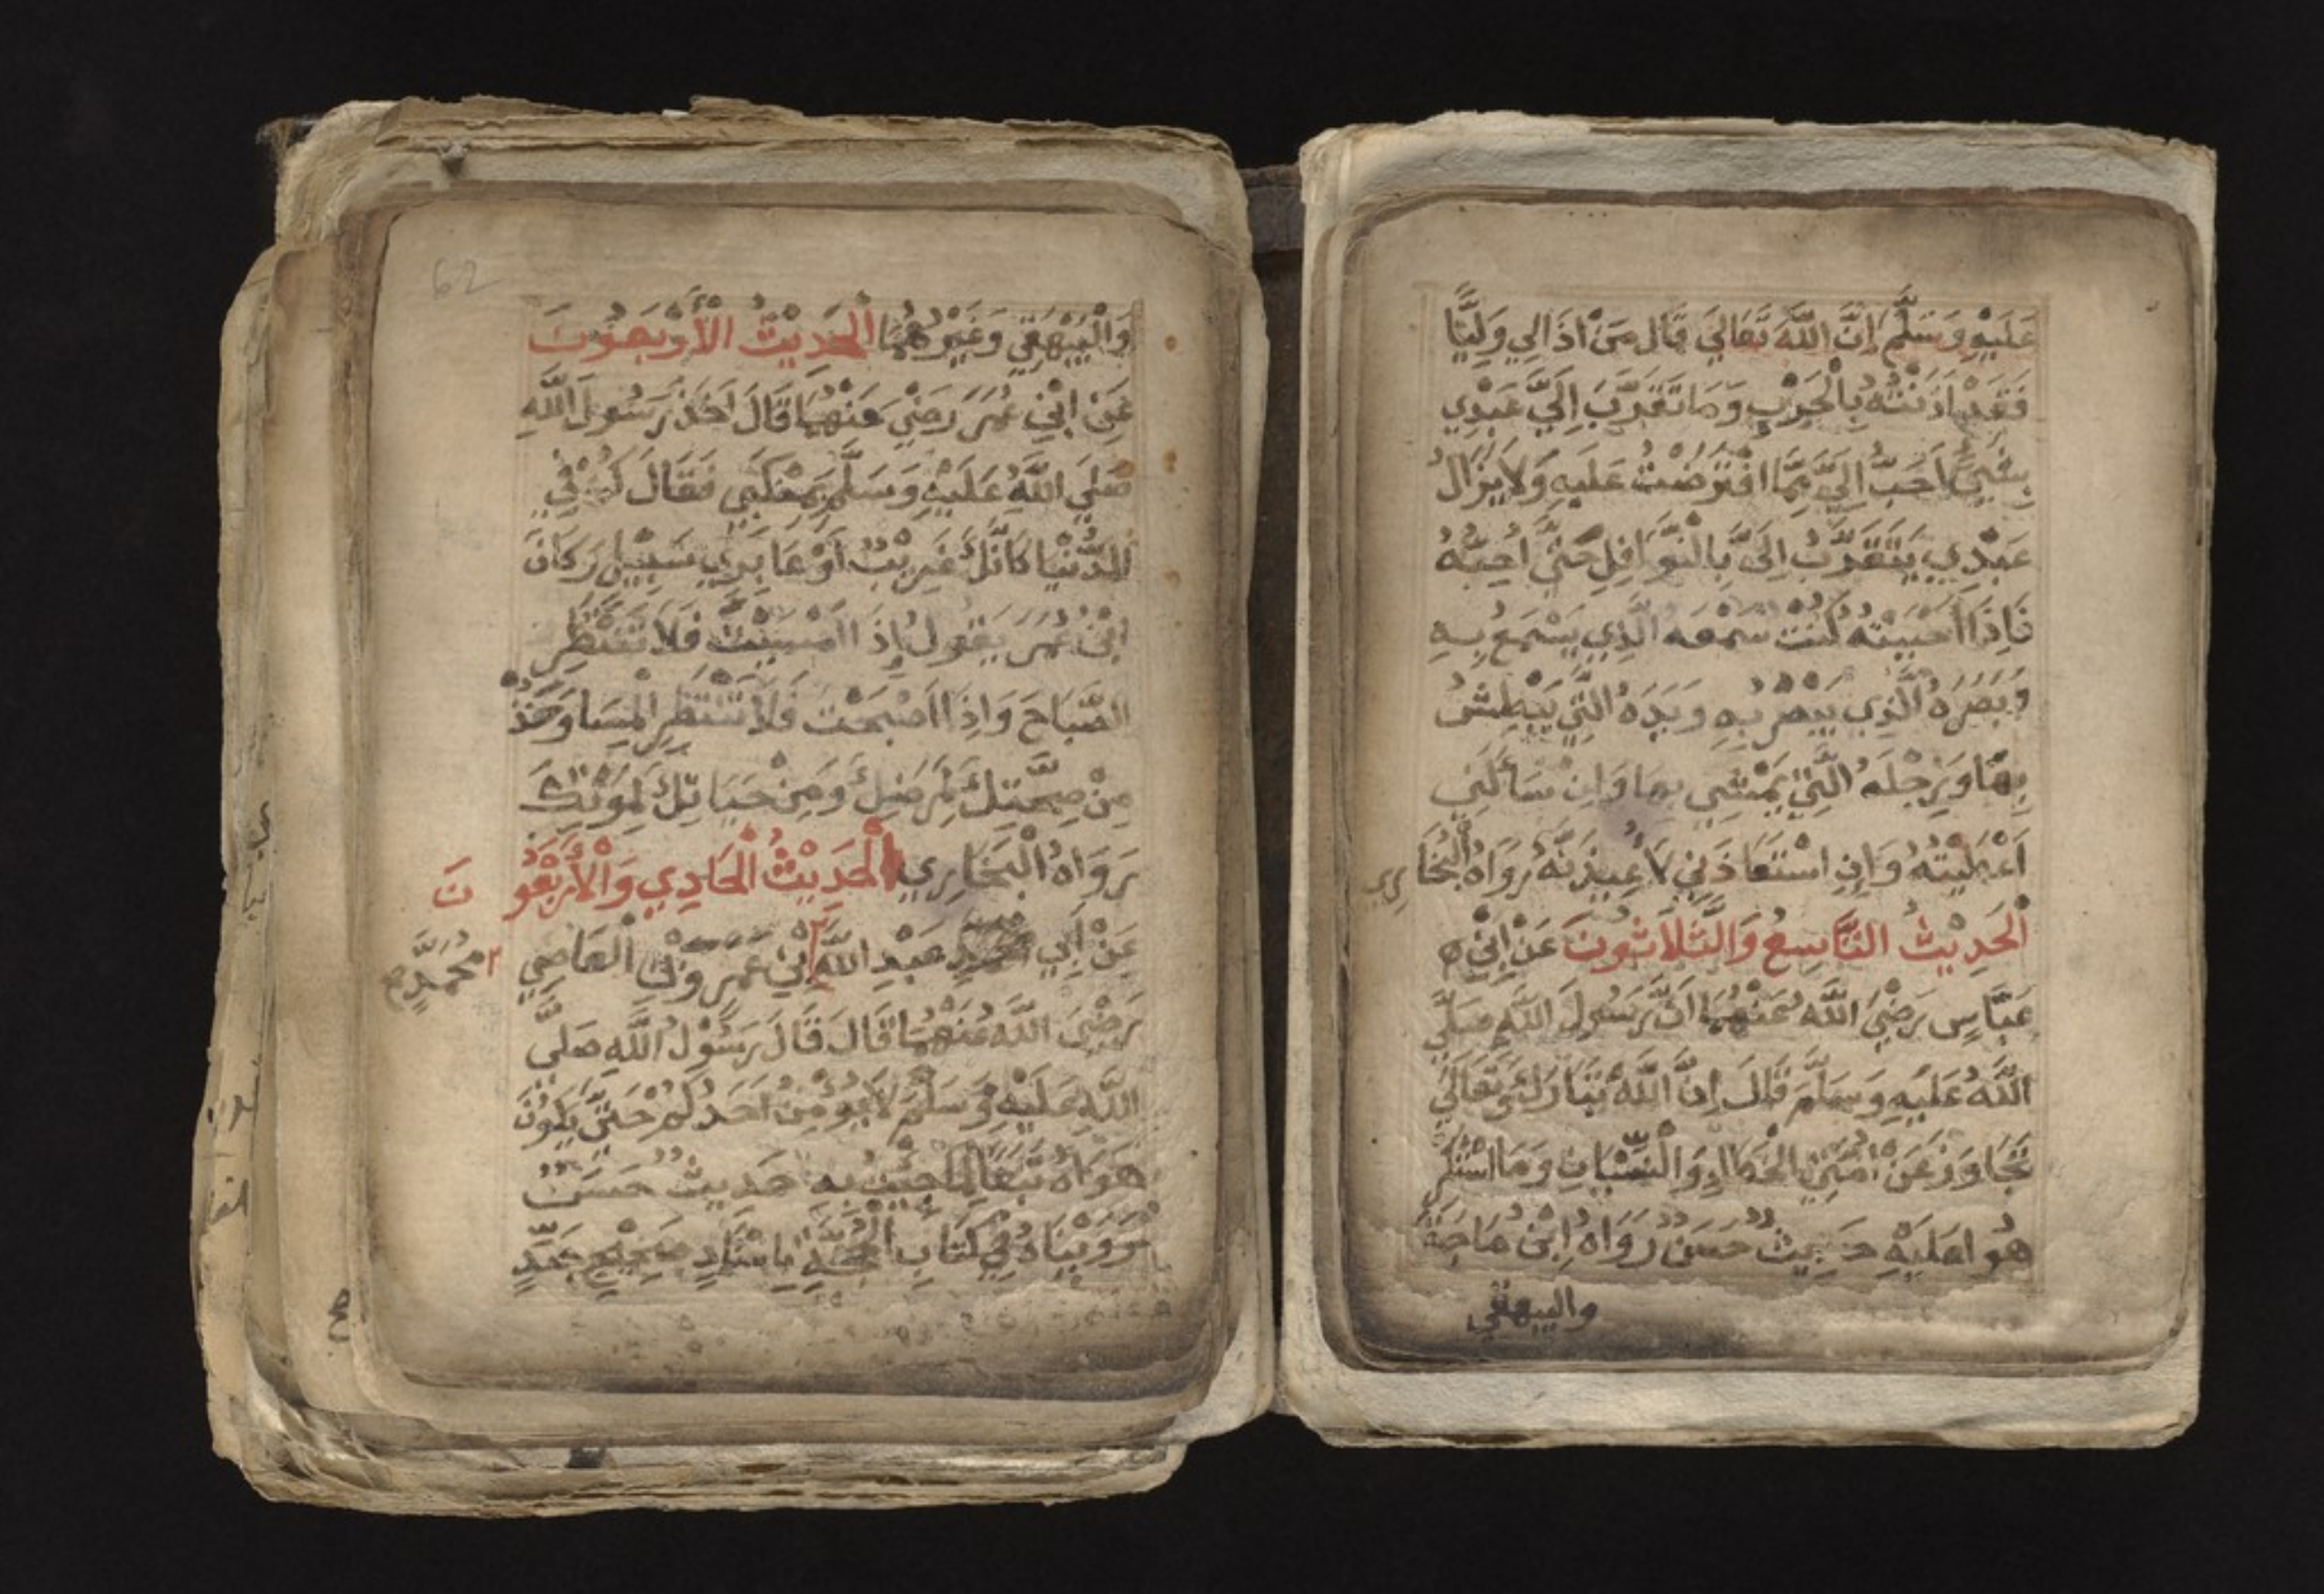 عَلَيْهِ وَسَلَّمَ إِنَّ اللَّهَ تَعَالَي قَالَ مَنْ اذَالِي وَلِيًّا
فَقَدْ اذَنْتُهُ بِالْحَرْبِ وَمَا تَقَرَّبَ اِلَيَّ عَبْدِي
بِشَيْءٍ اَحَبُّ اِلَيَّ مِمَّا افْتَرَضْتُ عَلَيْهِ وَلَا يَزَالُ
عَبْدِي يَتَقَرَّبُ اِلَيَّ بِالنَّوَافِلِ حَتَّي اُحِبَّهُ
فَاِذَا اَحْبَبْتُهُ كُنْتُ سَمْعَهُ الَّذِي يَسْمَعُ بِهِ
وَبَصَرَهُ الَّذِي يُبْصِرُ بِهِ وَيَدَهُ الَّتِي يَبْطِشُ
بِهَا وَرِجْلَهُ الَّتِي يَمْشِي بِهَا وَاِنْ سَأَلَنِي
اَعْطَيْتُهُ وَاِنِ اسْتَعَاذَنِي لَاُعِيذَنَّهُ رَوَاهُ الْبُخَارِي
اَلْحَدِيْثُ التَّاسِعُ وَالثَّلَاثُونَ عَنْ اِبْنِ
عَبَّاسٍ رَضِيَ اللَّهُ عَنْهُمَا اَنَّ رَسُولَ اللَّهِ صَلَّي
اللَّهُ عَلَيْهِ وَسَلَّمَ قَالَ اِنَّ اللَّهَ تَبَارَكَ وَتَعَالَي
تَجَاوَزَ عَنْ اُمَّتِي الْخَطَاا وَالنِّسْيَانِ وَمَا اسْتُكْرِ
هُوا عَلَيْهِ حَدِيثٌ حَسَنٌ رَوَاهُ ابْنُ مَاجَةَ
والبيهقي
62
وَالْبَيْهَقِي وَغَيْرُهُمَا اَلْحَدِيْثُ الْأَرْبَعُونَ
عَنْ ابْنِ عُمَرَ رَضِيَ عَنْهُمَا قَالَ اَخَذَ رَسُولُ اللَّهِ
صَلَّي اللَّهُ عَلَيْهِ وَسَلَّمَ بِمَنْكَبِي فَقَالَ كُنْ فِي
الدُّنْيَا كَأَنَّكَ غَرِيْبٌ اَوْ عَابِرِي سَبِيْلٍ وَكَانَ
ابْنُ عُمَرَ يَقُولُ اِذَا اَمْسَيْتَ فَلَا تَنْتَظِرِ
الصَّبَاحَ وَاِذَا اَصْبَحْتَ فَلَا تَنْتَظِرِ الْمَسَا وَخُذْ
مِنْ صِحَّتِكَ لِمَرَضِكَ وَمِنْ حَيَاتِكَ لِمَوْتِكَ
رَوَاهُ الْبُخَارِي اَلْحَدِيْثُ الْحَادِي وَالْأَرْبَعُونَ
عَنْ اَبِي عَبْدِ اللَّهِ ابْنِ عَمْرِو بْنِ الْعَاصِي
مُحَمَّدٍ
رَضِيَ اللَّهُ عَنْهُمَا قَالَ قَالَ رَسُوْلُ اللَّهِ صَلَّي
اللَّهُ عَلَيْهِ وَسَلَّمَ لَا يُؤْمِنُ اَحَدُكُمْ حَتَّي يَكُونَ
هَوَاهُ تَبَعًا لِمَا جِئْتُ بِهِ حَدِيثٌ حَسَنٌ
رَوَيْنَاهُ فِي كِتَابِ الْحُجَّةِ بِاسْنَادٍ صَحِيْحٍ